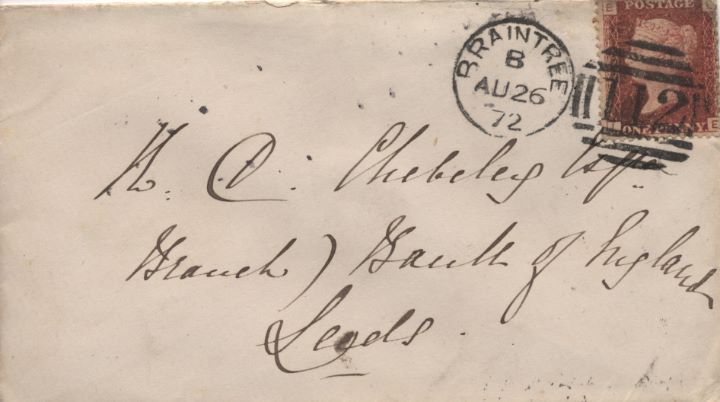 POSTAGE
BRAINTREE
B
AU 26
72
112
ONE PENNY
E
H. C. Chebsley Esqre
Branch) Bank of England
Leeds.